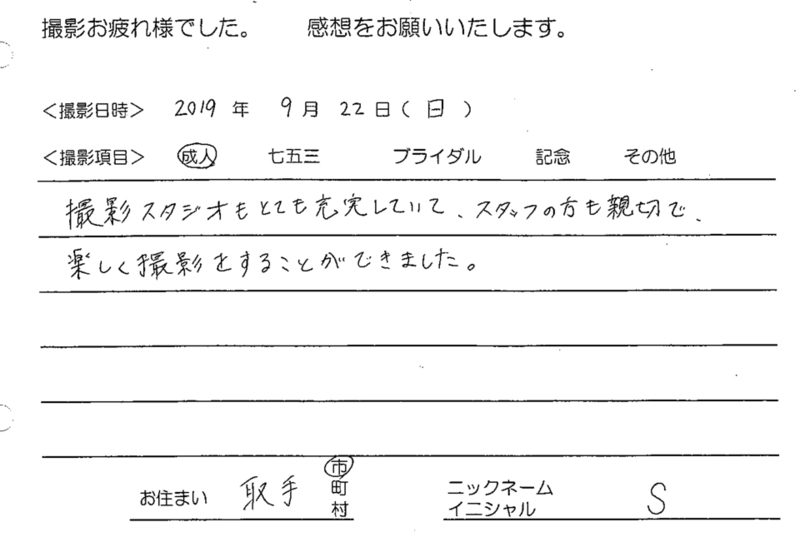 撮影お疲れ様でした。　感想をお願いいたします。
＜撮影日時＞ 2019 年 9 月 22 日 ( 日 )
＜撮影項目＞ 成人 七五三 ブライダル 記念 その他
撮影スタジオもとても充実していて、スタッフの方も親切で、
楽しく撮影をすることができました。
お住まい 取手 市
町
村
ニックネーム
イニシャル S